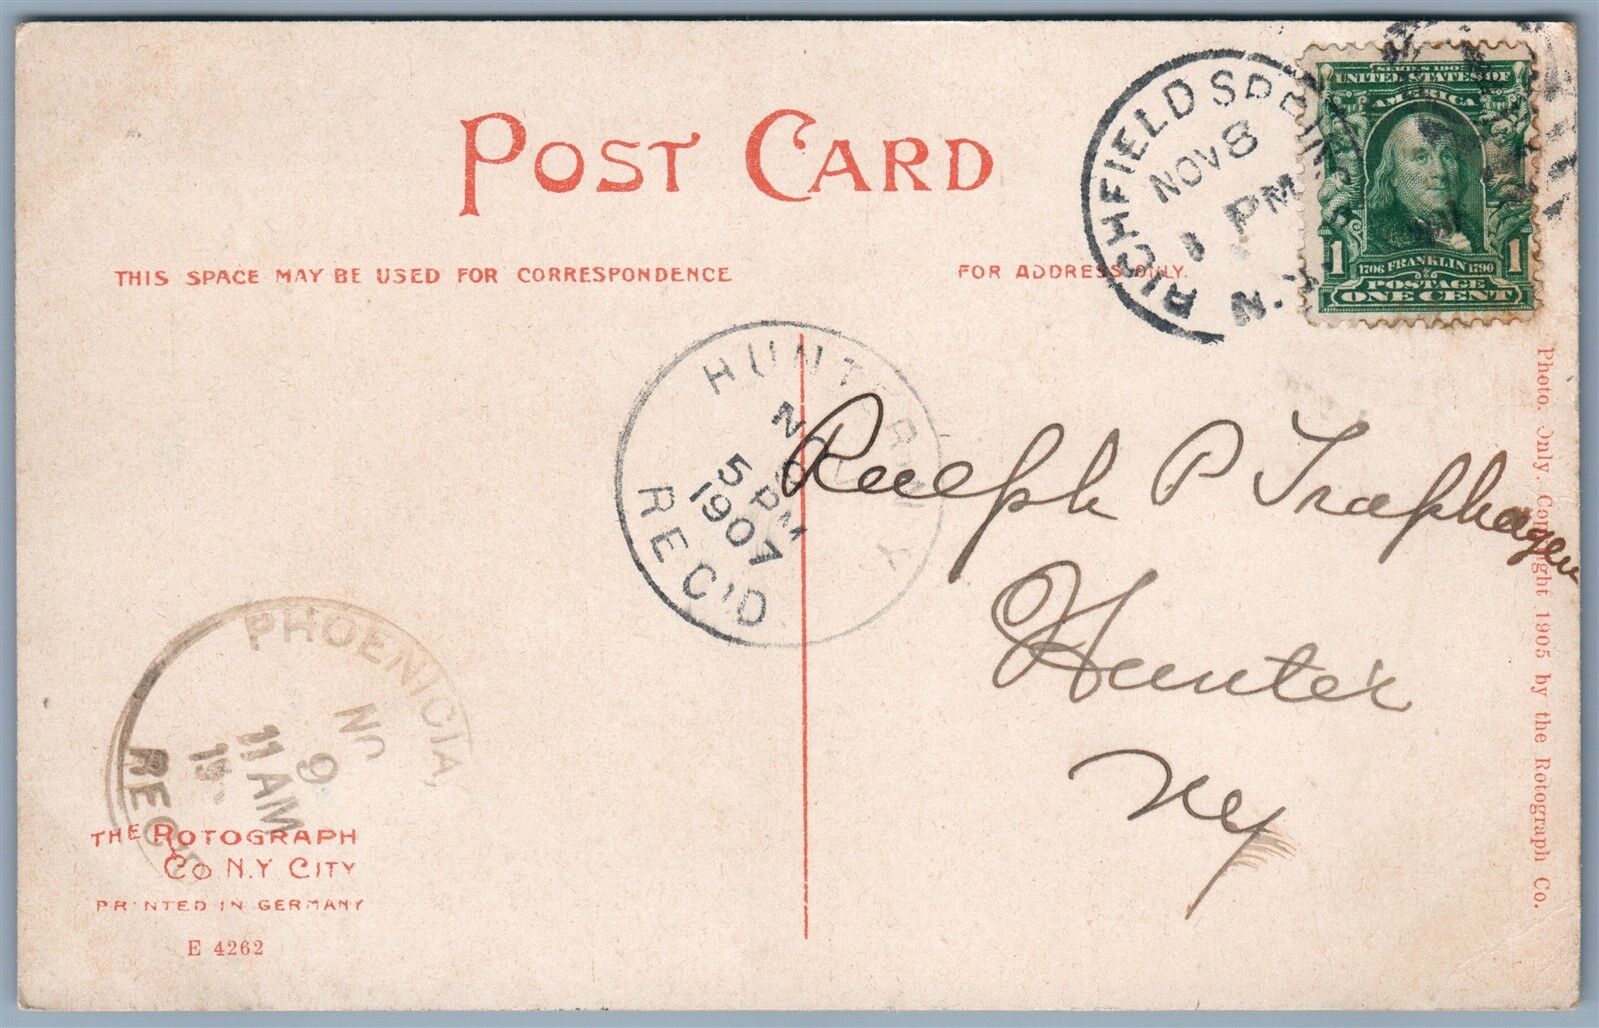 POST CARD
THIS SPACE MAY BE USED FOR CORRESPONDENCE
FOR ADDRESS ONLY.
RICHFIELD SPRINGS
NOV 8
PM
N.Y.
SERIES 1902
UNITED STATES OF
AMERICA
1 1
1706 FRANKLIN 1790
POSTAGE
ONE CENT
HUNTER
NOV
5 PM
1907
REC'D
N Y
Ralph P Traphagen
Hunter
NY
PHOENICIA,
NO
9
11 AM
19
REC'D
THE ROTOGRAPH
CO N.Y CITY
PRINTED IN GERMANY
E 4262
Photo. Only. Copyright 1905 by the Rotograph Co.